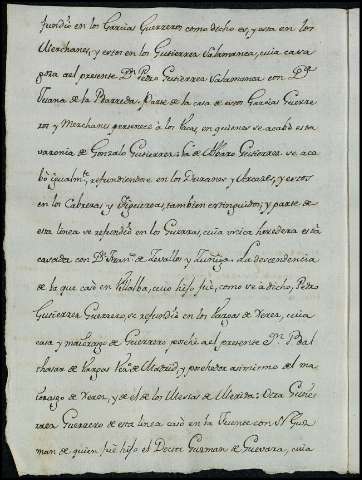 fundió en los Garcias Guerreros como dicho es, y esta en los
Merchanes, y estos en los Gutierrez Salamanca, cuia casa
posa al presente Dn Pedro Gutierrez Salamanca con Da
Juana de la Parreda. Parte de la casa de estos Garcias Guerre
ros y Merchanes pertenece à los Vacas, en quienes se acabò esta
varonia de Gonzalo Gutierrez: la de Alvaro Gutierrez se aca
bò igualmte, refundiendose en los Duranes y Arcazes, y estos
en los Cabreras y Figuereas, tambien extinguidos; y parte de
esta linea se refundiò en los Guerras, cuia unica heredera està
casada con Dn Franco de Zevallos y Zuñiga. La descendencia
de la que casò en Villalba, cuio hijo fuè, como se à dicho, Pedro
Gutierrez Guerrero, se refundiò en los Vargas de Xerez, cuia
casa y maiorazgo de Guerrero posehe al presente Dn Bal
thasar de Vargas de Madrid, y posehedor asimismo del ma
iorazgo de Xerez, y de el de los Mexias de Merida: Otra Gutie
rrez Guerrero de esta linea casò en la Fuente con N. Guz
man de quien fuè hijo el Doctor Guzman de Guevara, cuia